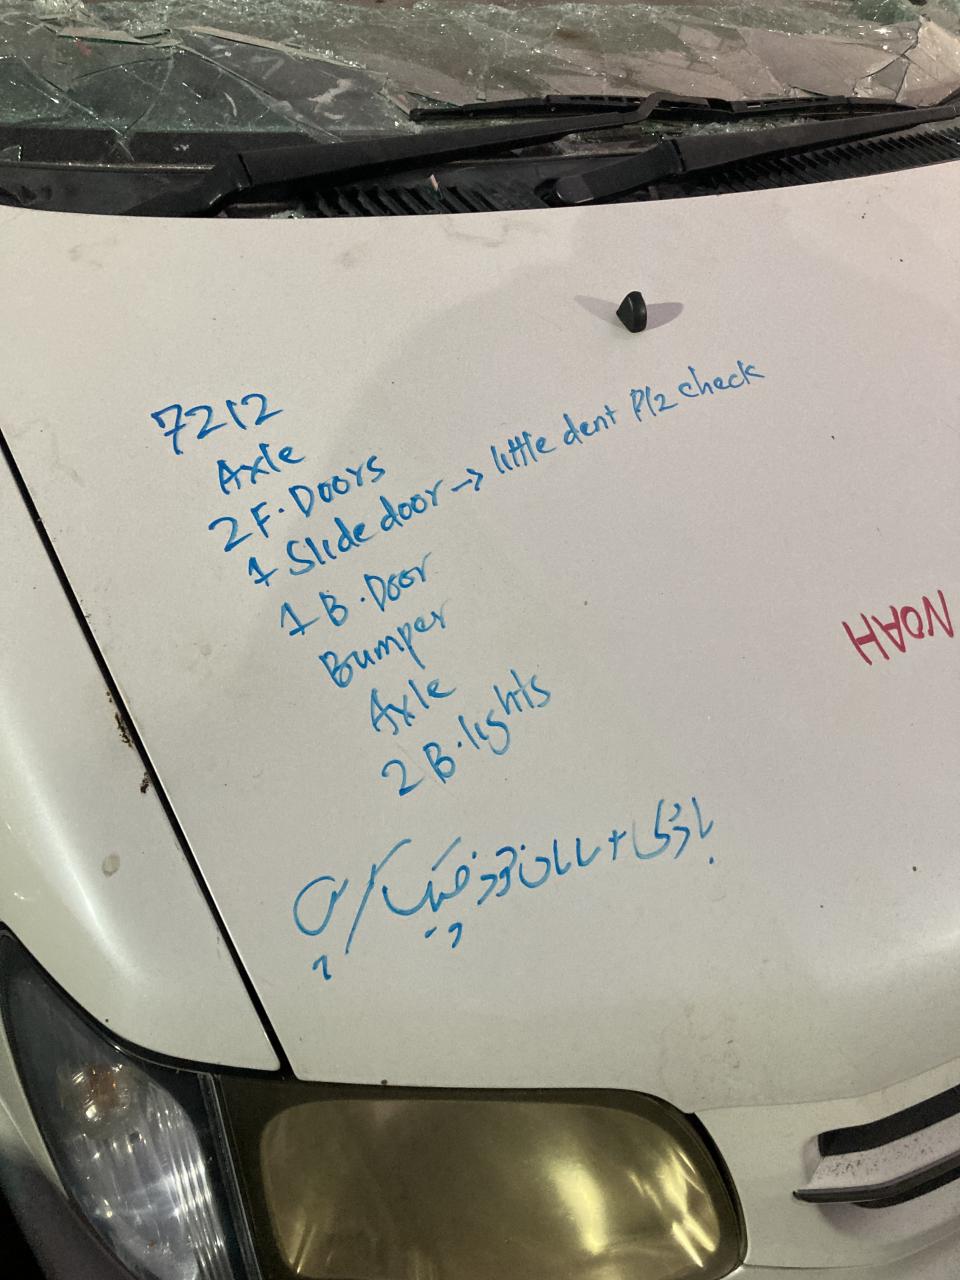 7212
Axle
2 F. Doors
1 Slide door → little dent Plz check
1 B. Door
Bumper
Axle
2 B. lights
NOAH
باڈی +